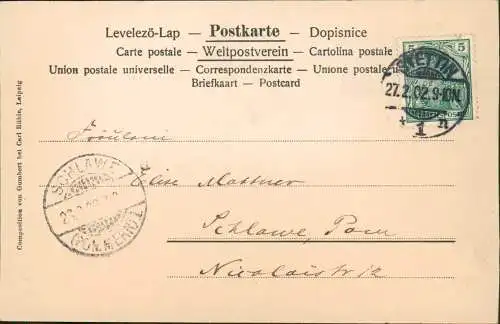 Levelező-Lap — Postkarte — Dopisnice
Carte postale — Weltpostverein — Cartolina postale
Union postale universelle — Correspondenzkarte — Unione postale
Briefkaart — Postcard
5 5
STETTIN
27.2.02.9-10N.
* 1 n
Composition von Gumbert bei Carl Rühle, Leipzig
Fräulein
Elise Mattner
Schlawe, Pom
Nicolaistr 12
SCHLAWE
(POMMERN)